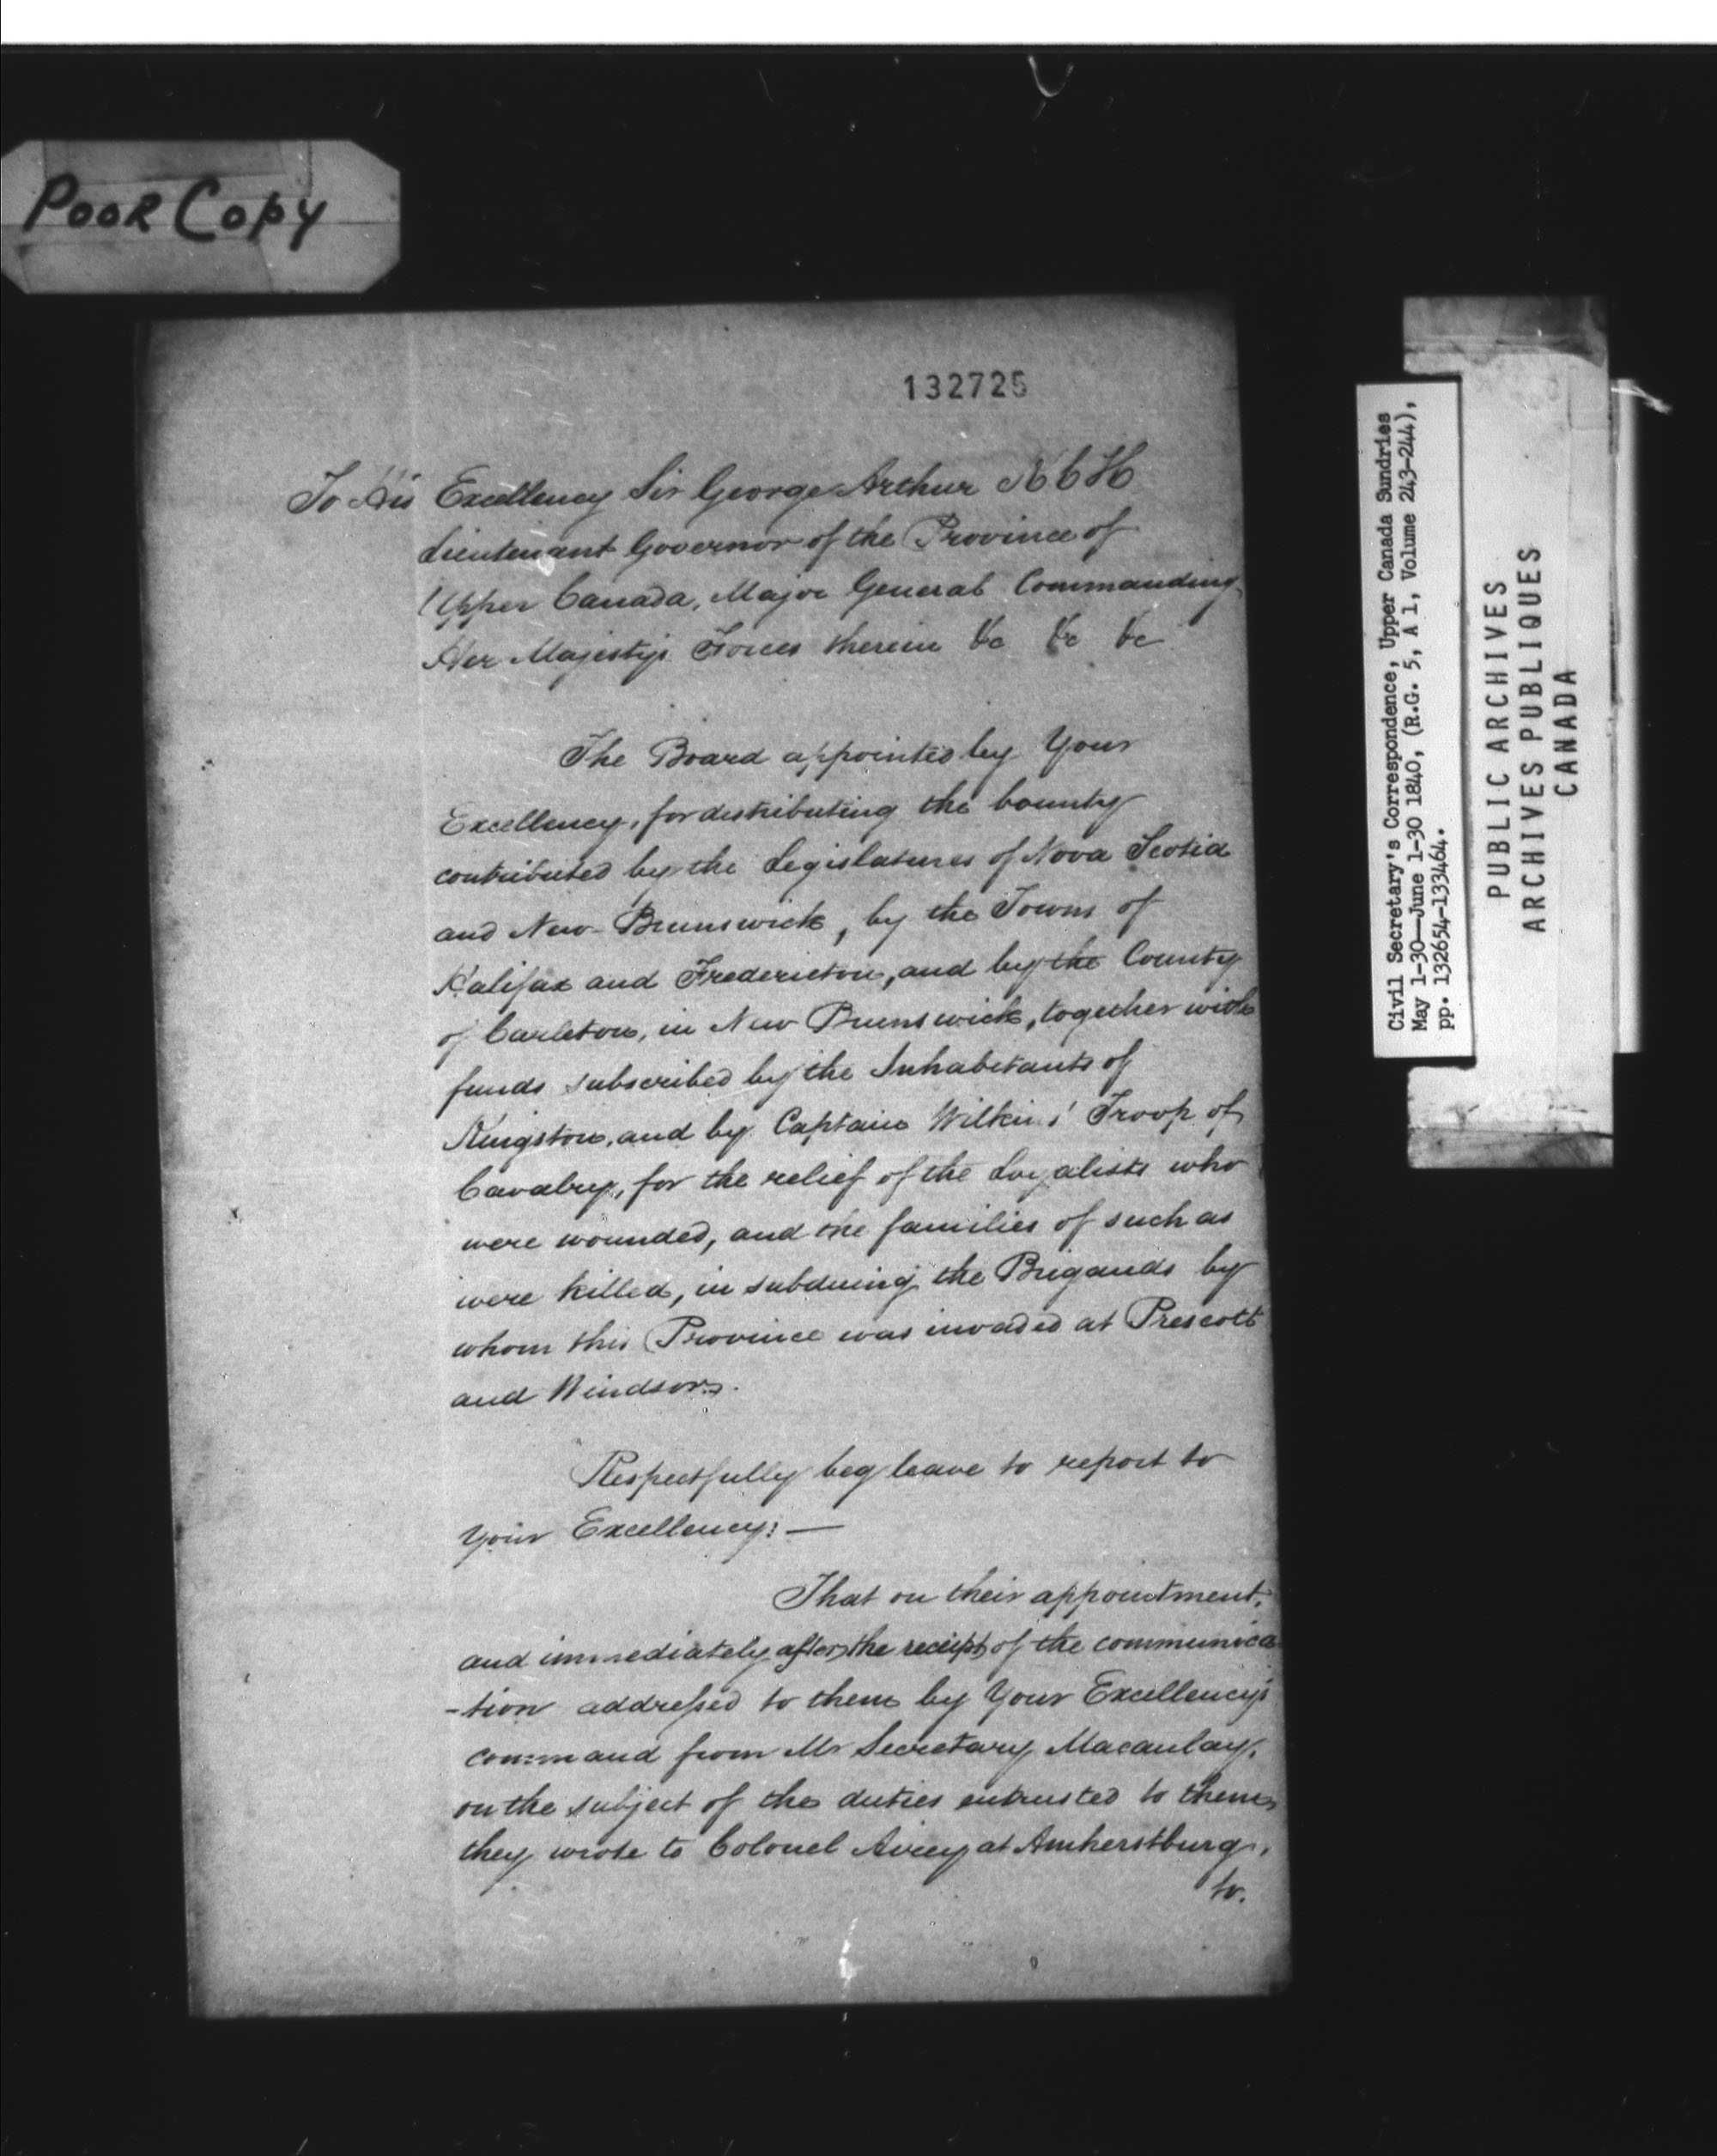 Poor Copy
132725
To His Excellency Sir George Arthur K C H
Lieutenant Governor of the Province of
Upper Canada, Major General Commanding
Her Majesty's Forces therein &c &c &c
The Board appointed by Your
Excellency, for distributing the bounty
contributed by the Legislatures of Nova Scotia
and New-Brunswick, by the Towns of
Halifax and Fredericton, and by the County
of Carleton, in New Brunswick, together with
funds subscribed by the Inhabitants of
Kingston, and by Captain Wilkins' Troop of
Cavalry, for the relief of the Loyalists who
were wounded, and the families of such as
were killed, in subduing the Brigands by
whom this Province was invaded at Prescott
and Windsor.
Respectfully beg leave to report to
Your Excellency: —
That on their appointment,
and immediately after the receipt of the communica-
-tion addressed to them by Your Excellency's
command from Mr Secretary Macaulay,
on the subject of the duties entrusted to them,
they wrote to Colonel Airey at Amherstburg,
to.
Civil Secretary's Correspondence, Upper Canada Sundries
May 1-30—June 1-30 1840, (R.G. 5, A 1, Volume 243-244),
pp. 132654-133464.
PUBLIC ARCHIVES
ARCHIVES PUBLIQUES
CANADA